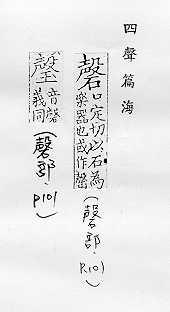 四聲篇海
磬口定切以石為
樂器也或作
(磬部.P.101)
音磬
義同
(磬部.P101)